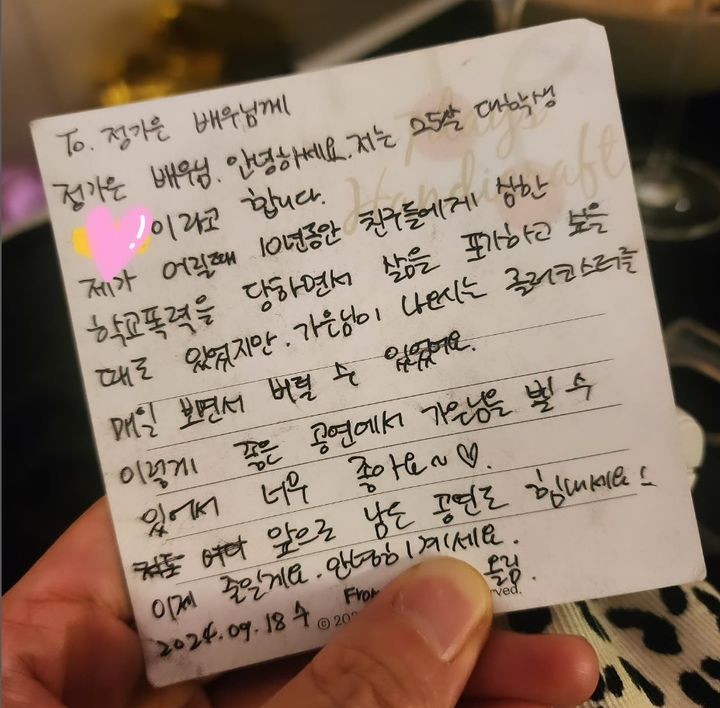 To. 정가은 배우님께
정가은 배우님. 안녕하세요. 저는 25살 대학생
이라고 합니다.
제가 어릴때 10년동안 친구들에게 심한
학교폭력을 당하면서 삶을 포기하고 싶을
때도 있었지만. 가은님이 나오시는 롤러코스터를
매일 보면서 버틸 수 있었어요.
이렇게 좋은 공연에서 가은님을 뵐 수
있어서 너무 좋아요~♡.
앞으로 남은 공연도 힘내세요
이제 줄일게요. 안녕히계세요.
2024.09.18 수 From 올림.
Always
Handicraft
© 202 rved.